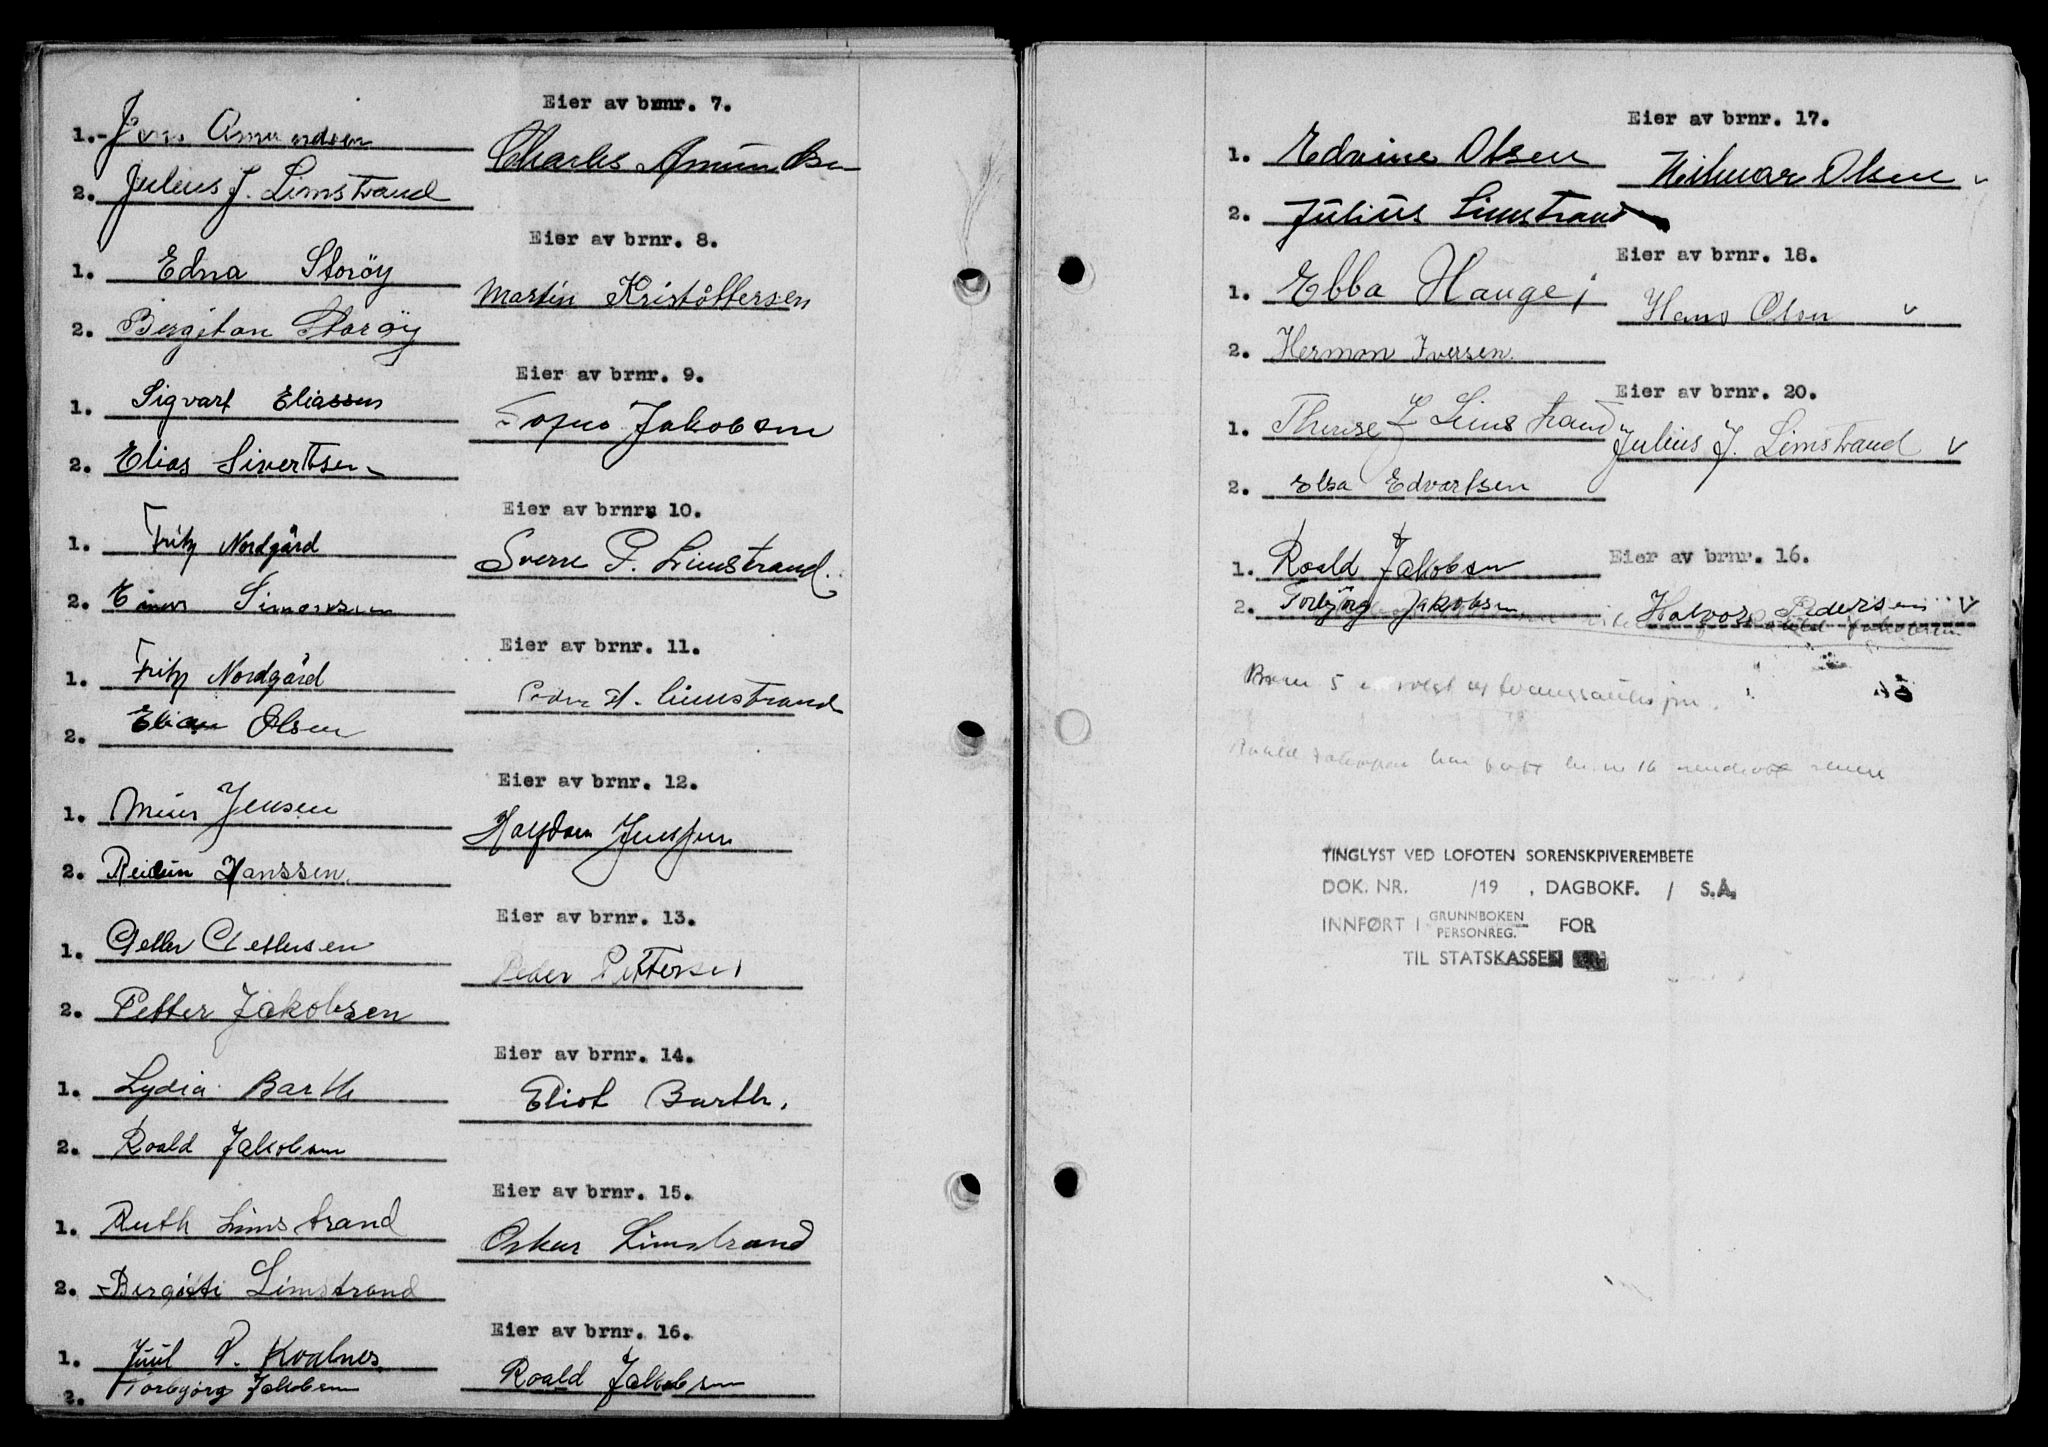 Eier av brnr. 7.
1.- Jens Amundsen
Charles Amundsen
2. Julius J. Limstrand
Eier av brnr. 8.
1. Edna Storøy
Martin Kristoffersen
2. Bergiton Storøy
Eier av brnr. 9.
1. Sigvart Eliassen
Jakobsen
2. Elias Sivertsen
Eier av brnr. 10.
1. Fritz Nordgård
Sverre P. Limstrand.
2. Einar Simonsen
Eier av brnr. 11.
1. Fritz Nordgård
Peder H. Limstrand
2. Olsen
Eier av brnr. 12.
1. Jensen
Halfdan Jenssen
2. Reidun Hanssen.
Eier av brnr. 13.
1.
Peder Pettersen
2. Petter Jakobsen
Eier av brnr. 14.
1. Lydia Barth
Eliot Barth.
2. Roald Jakobsen
Eier av brnr. 15.
1. Ruth Limstrand
Oskar Limstrand
2. Bergitte Limstrand
Eier av brnr. 16.
1. Juul P. Kvalnes
Roald Jakobsen
2. Torbjørg Jakobsen
Eier av brnr. 17.
1. Edvine Olsen
Hilmar Olsen v
2. Julius Limstrand
Eier av brnr. 18.
1. Ebba Hauge
Hans Olsen v
2. Herman Iversen.
Eier av brnr. 20.
1. Therese J Limstrand
Julius J. Limstrand v
2. Elsa Edvartsen
Eier av brnr. 16.
1. Roald Jakobsen
2. Torbjörg Jakobsen
Halvor Pedersen v
Brnr 5 er solgt
Roald Jakobsen har kjøpt br.nr 16
TINGLYST VED LOFOTEN SORENSKPIVEREMBETE
DOK. NR. /19 , DAGBOKF. / S.Å.
INNFØRT I GRUNNBOKEN PERSONREG. FOR
TIL STATSKASSEN